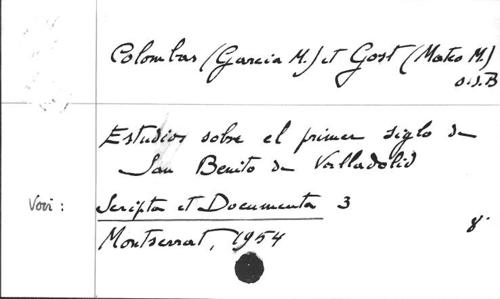 Colombas (Garcia M.) et Gost (Mateo M.)
O.S.B
Estudios sobre el primer siglo de
San Benito de Valladolid
Voir : Scripta et Documenta 3
Montserrat, 1954 8°